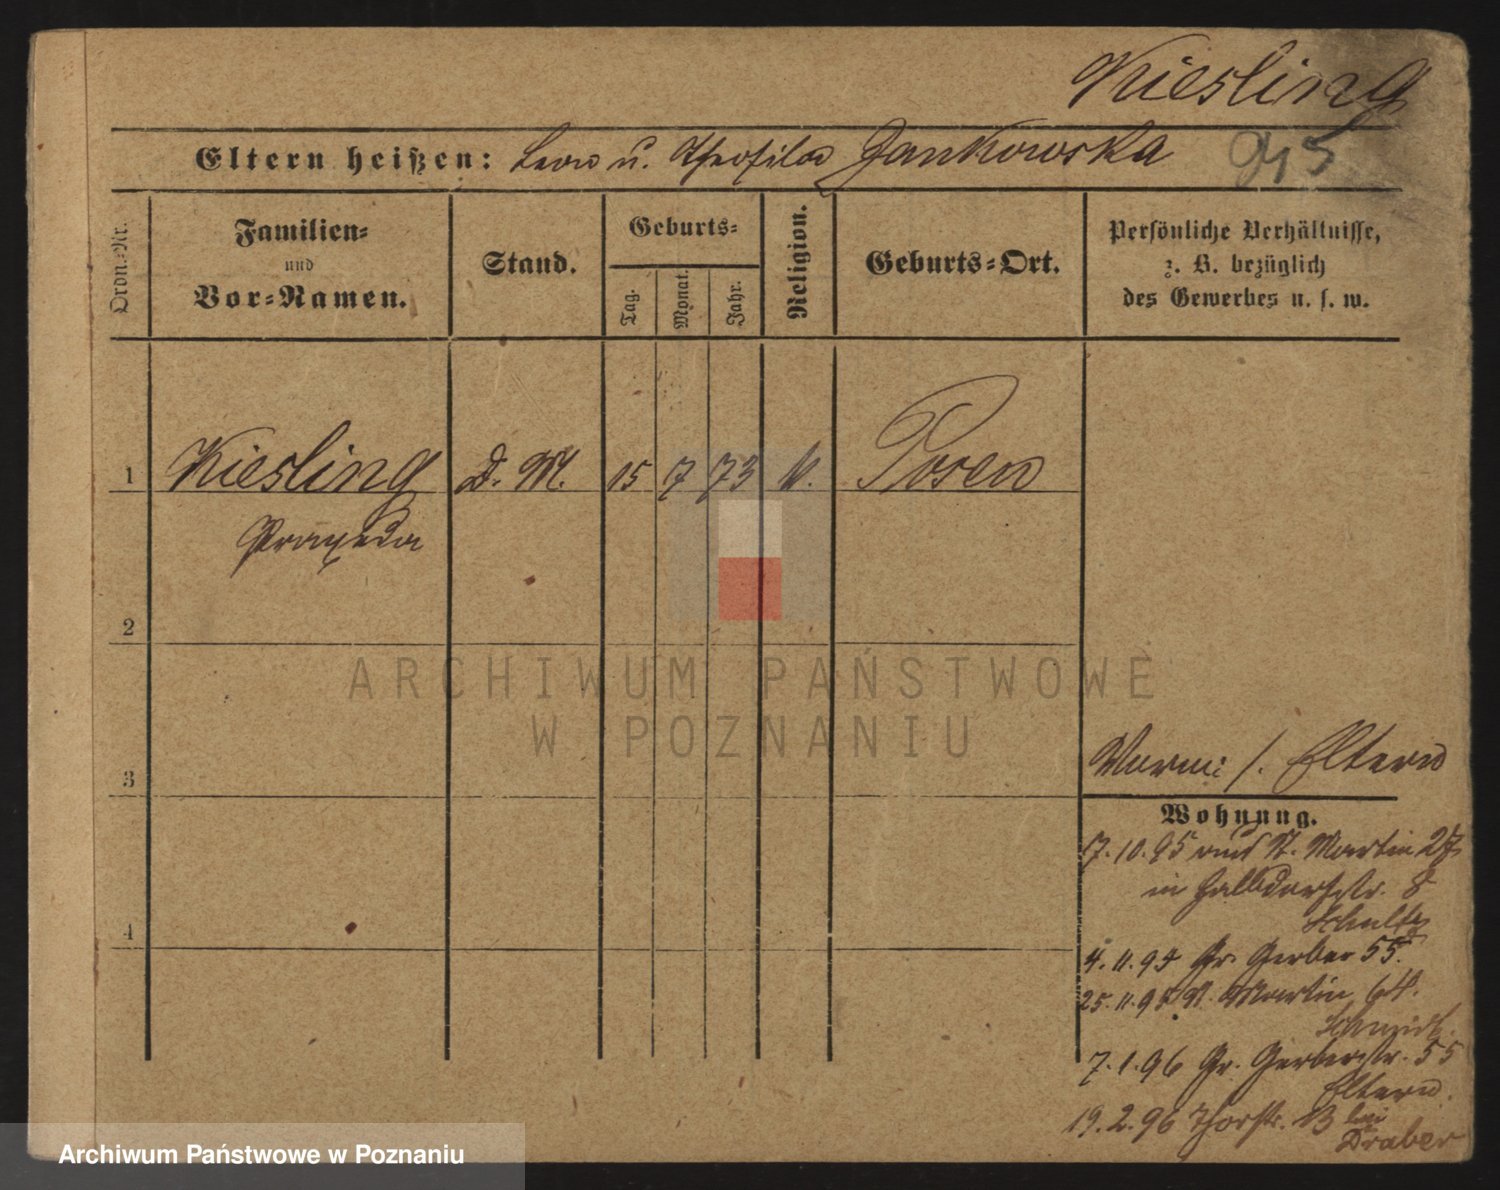 Kiesling
Eltern heißen: Leon u. Theofila Jankowska
Ordn.-Nr.
Familien-
und
Vor-Namen.
Stand.
Geburts-
Tag.
Monat.
Jahr.
Religion.
Geburts-Ort.
Persönliche Verhältnisse,
z. B. bezüglich
des Gewerbes u. s. w.
1 Kiesling D. M. 15 7 73 k. Posen
Praxeda
2
ARCHIWUM PAŃSTWOWE
W POZNANIU
3
Eltern
Wohnung.
7.10.95 St. Martin 27
in 8
Schultz
4
4.11.95 Gr. Gerber 55.
25.11.95 St. Martin 64.
Schmidt.
7.1.96 Gr. Gerberstr. 55
Eltern.
19.2.96 Thorstr. 13 bei
Draber
Archiwum Państwowe w Poznaniu